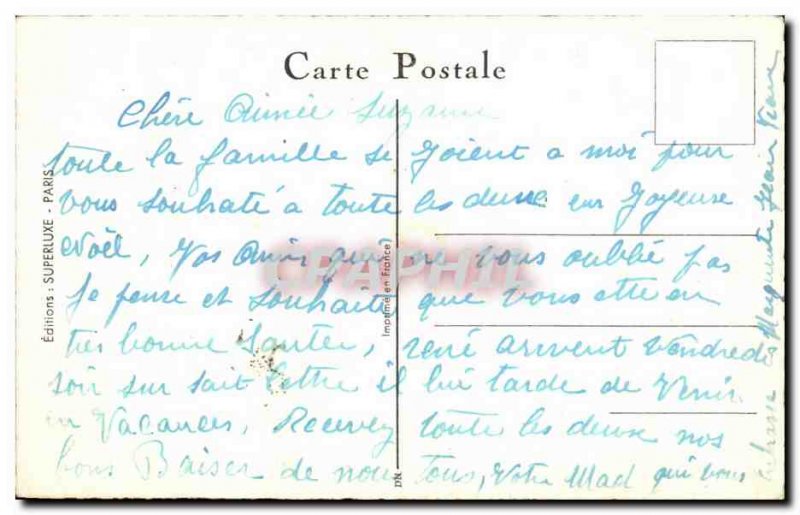 Carte Postale
Chère Aimée Suzanne
toute la famille se joient a moi pour
vous souhaté a toute les deux un Joyeuse
Noël, Vos Amis qui ne vous oublié pas
Je pense et souhaite que vous ette en
tres bonne Santer, rené arrivent Vendredi
soir sur sait lettre il lui tarde de Venir
en Vacances, Recevez toute les deux nos
bons Baiser de nous tous, Votre Mad qui vous
embrasse Marguerite Jean
Editions : SUPERLUXE - PARIS
Imprimé en France
CPAPHIL